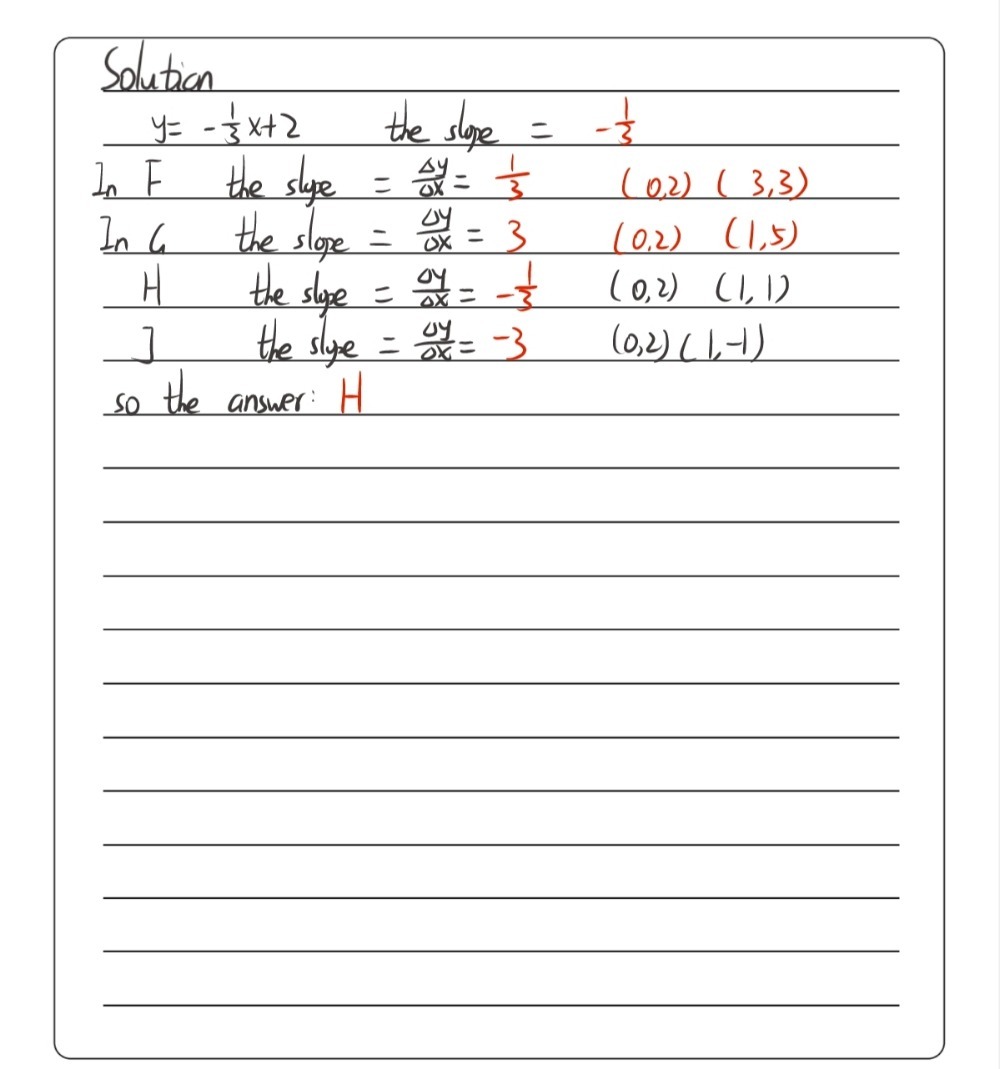 Solution
y= -1/3 x+2 the slope = -1/3
In F the slope = Δy/Δx = 1/3 (0,2) (3,3)
In G the slope = Δy/Δx = 3 (0,2) (1,5)
H the slope = Δy/Δx = -1/3 (0,2) (1,1)
J the slope = Δy/Δx = -3 (0,2) (1,-1)
so the answer: H